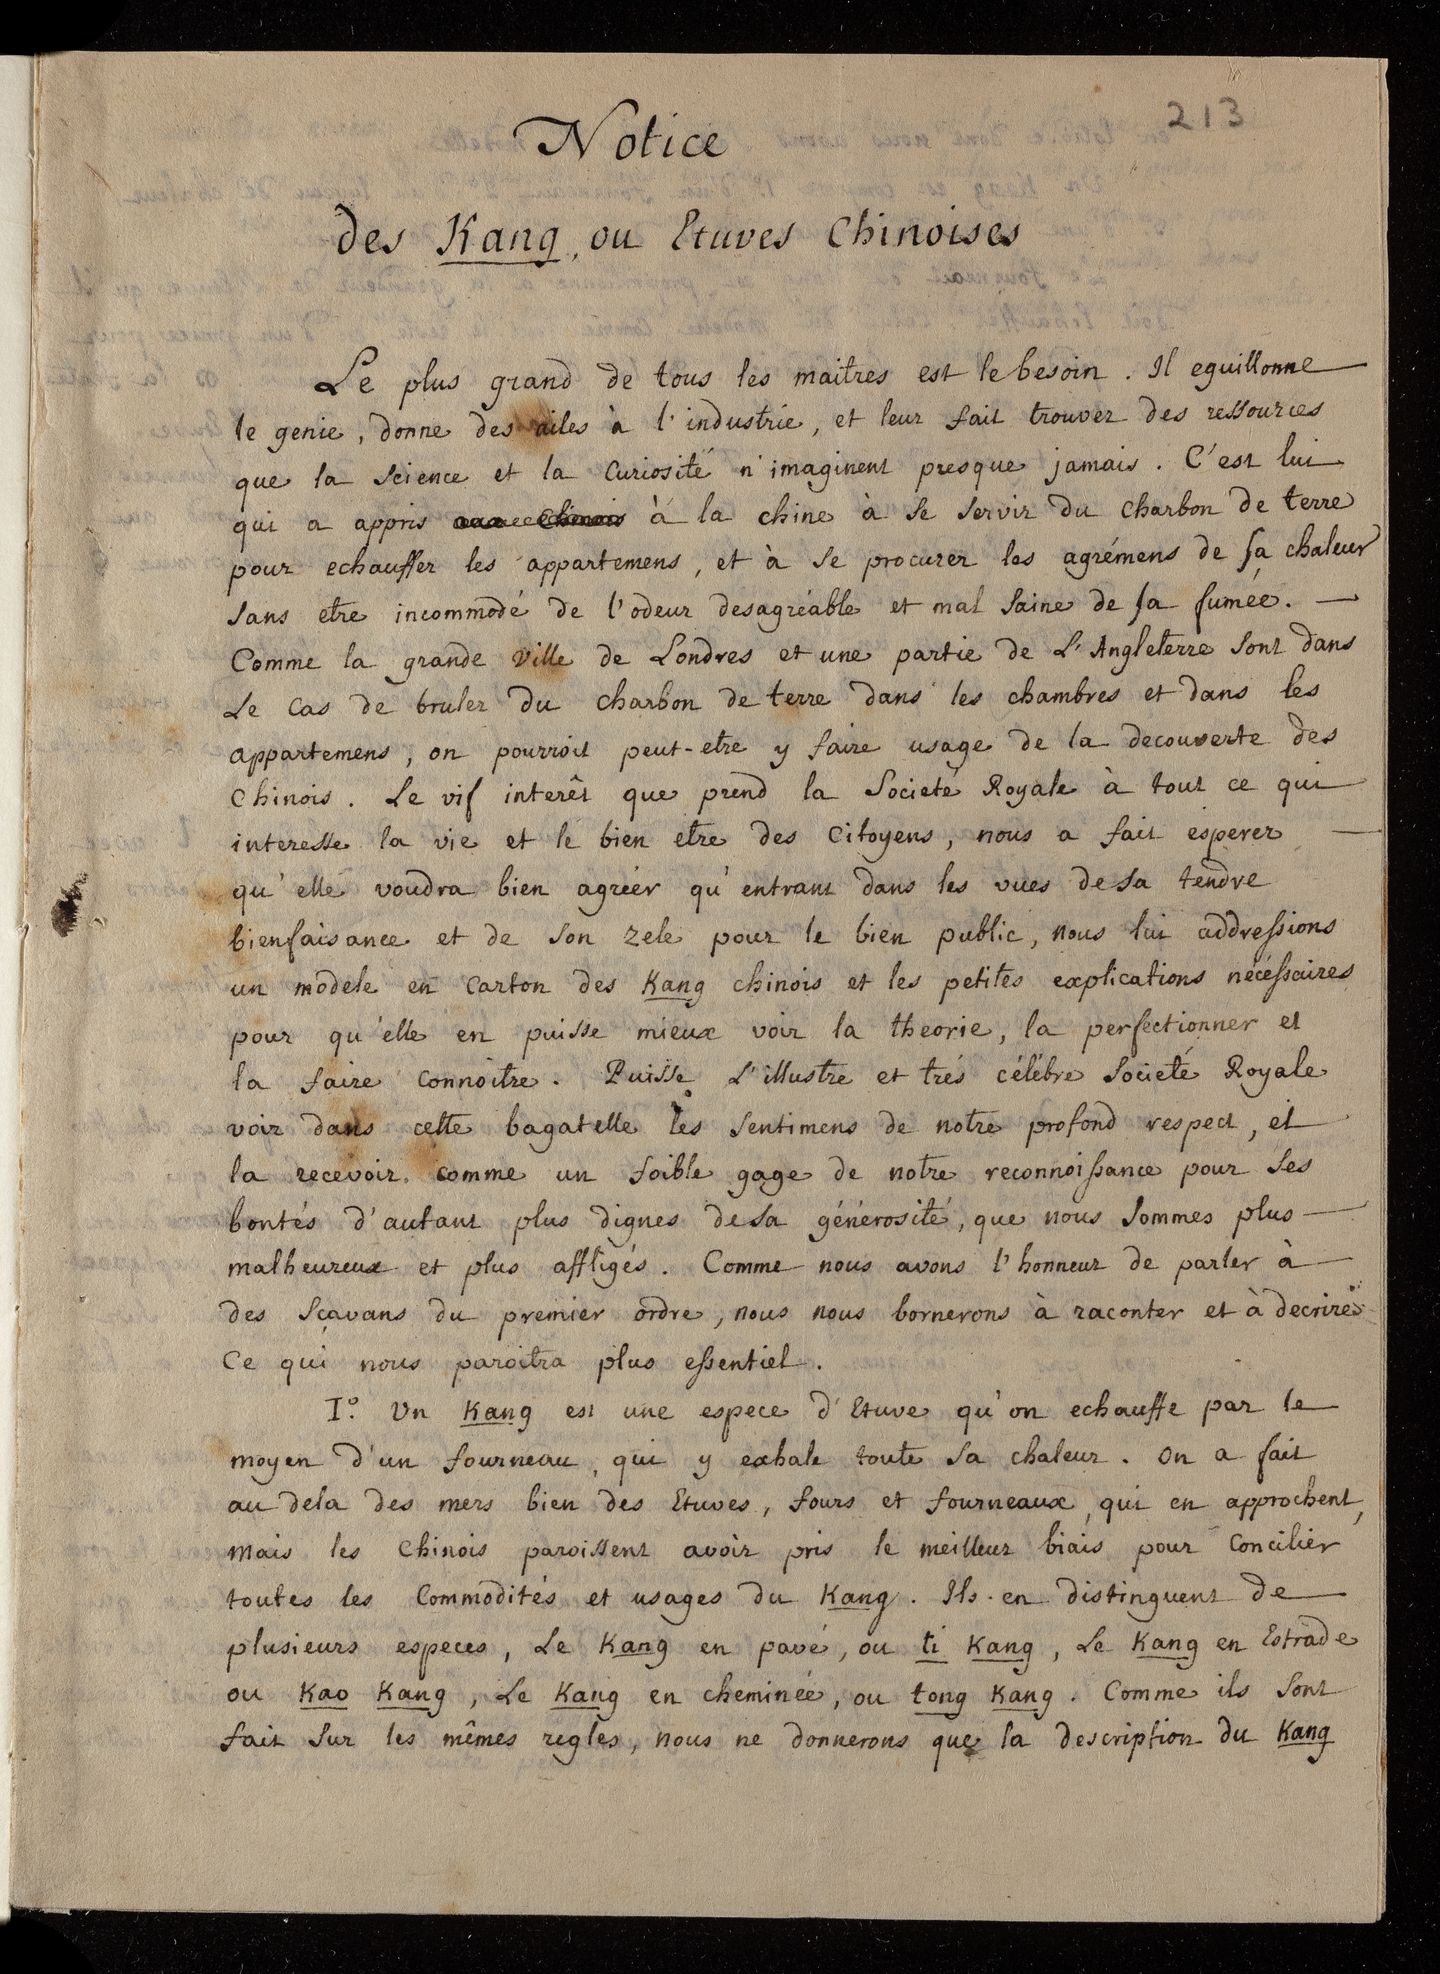 213
Notice
des Kang, ou Etuves Chinoises
Le plus grand de tous les maitres est le besoin. Il eguillonne
le genie, donne des ailes à l'industrie, et leur fait trouver des ressources
que la science et la curiosité n'imaginent presque jamais. C'est lui
qui a appris aux Chinois à la chine à se servir du charbon de terre
pour echauffer les appartemens, et à se procurer les agrémens de sa chaleur
sans etre incommodé de l'odeur desagréable et mal saine de sa fumée.
Comme la grande Ville de Londres et une partie de L'Angleterre sont dans
Le cas de bruler du charbon de terre dans les chambres et dans les
appartemens, on pourroit peut-etre y faire usage de la decouverte des
Chinois. Le vif interêt que prend la Societé Royale à tout ce qui
interesse la vie et le bien etre des Citoyens, nous a fait esperer
qu'elle voudra bien agréer qu'entrant dans les vues de sa tendre
bienfaisance et de son zele pour le bien public, nous lui addressions
un modele en Carton des Kang chinois et les petites explications nécéssaires
pour qu'elle en puisse mieux voir la theorie, la perfectionner et
la faire connoitre. Puisse L'illustre et trés célébre Societé Royale
voir dans cette bagatelle les sentimens de notre profond respect, et
la recevoir comme un foible gage de notre reconnoissance pour ses
bontés d'autant plus dignes de sa générosité, que nous sommes plus
malheureux et plus affligés. Comme nous avons l'honneur de parler à
des sçavans du premier ordre, nous nous bornerons à raconter et à decrire
Ce qui nous paroitra plus essentiel.
I.° Un Kang est une espece d'Etuve qu'on echauffe par le
moyen d'un fourneau, qui y exhale toute sa chaleur. On a fait
au dela des mers bien des Etuves, fours et fourneaux, qui en approchent,
mais les Chinois paroissent avoir pris le meilleur biais pour Concilier
toutes les Commodités et usages du Kang. Ils en distinguent de
plusieurs especes, Le Kang en pavé, ou ti Kang, Le Kang en Estrade
ou Kao Kang, Le Kang en cheminée, ou tong Kang. Comme ils sont
fait sur les mêmes regles, nous ne donnerons que la description du Kang